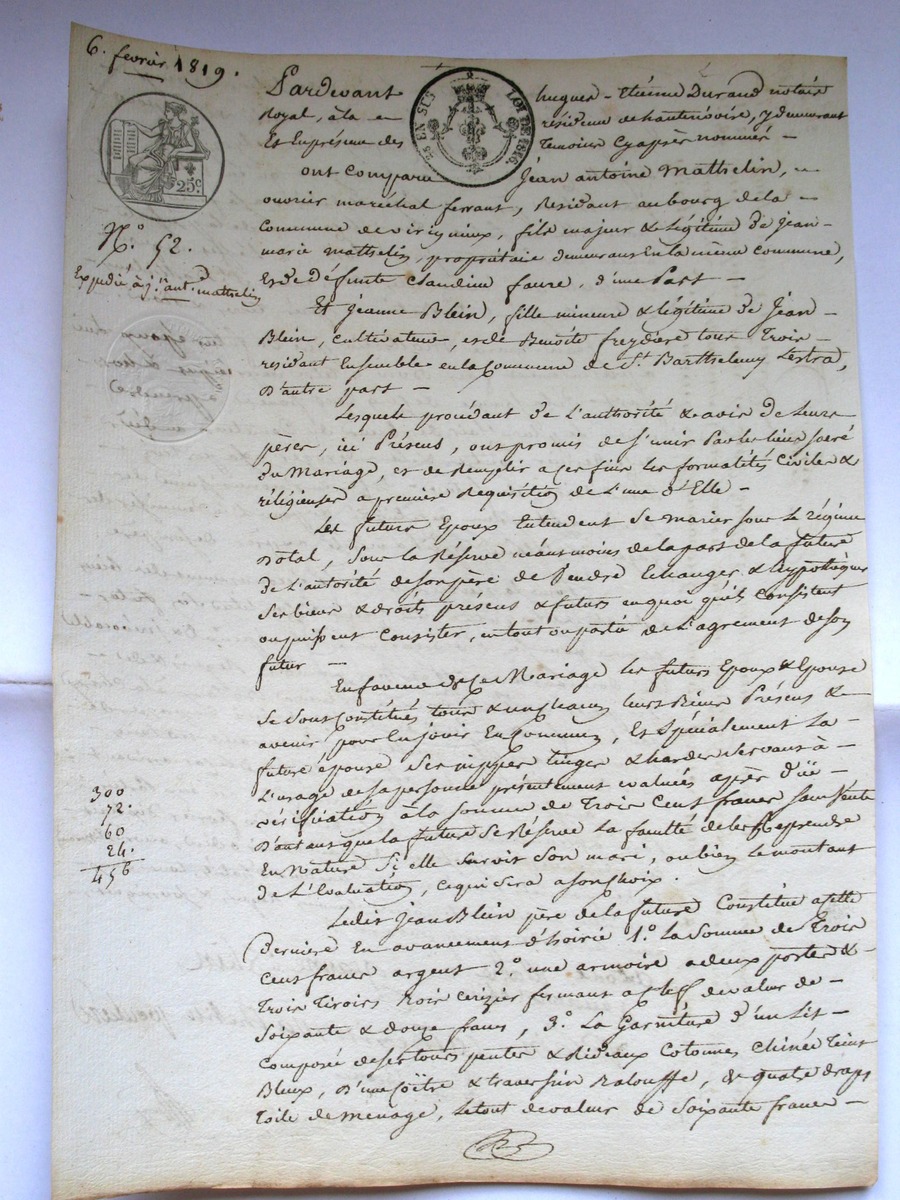 6. fevrier 1819.
Pardevant hugues-Etienne Durand notaire
Royal, à la résidence de chantenoire, y demeurant
Et En présence des Temoins Cyaprès nommés –
EN SUS LOI DE 1816.
25c.
ont Comparu Jean antoine Mathelin,
ouvrier maréchal ferrant, Résidant au bourg de la –
Commune de virigneux, fils majeur & Légitime de jean-
marie mathelin, propriétaire demeurans En la même commune,
et de défunte Claudine faure, d'une Part –
N.º 52.
Expédié à j.n ant. mathelin
Et jeanne Blein, fille mineure & légitime de Jean –
Blein, cultivateur, et de Benoite freydare tous Trois –
residant Ensemble en la Commune de S.t Barthelemy Lestra,
D'autre part –
Lesquels procédant de L'authorité & avis de Leurs
pères, ici Présens, ont promis de s'unir Par les liens sacré
du Mariage, et de Remplir a ces fins les formalités Civiles &
réligieuses a premiere Requisition de L'une d'Elle –
Les futurs Epoux Entendent Se marier sous le régime
Dotal, Sous la Réserve néantmoins de la part de la future
de L'autorité de son père de Vendre Echanger & hypothèquer
Ses biens & droits présens & futurs en quoi qu'els Consistent
ou puissent Consister, en tout ou partie de L'agrement de son
futur –
En faveur de Ce Mariage les futurs Epoux & Epouse
Se sont Constitués tous & un chacun leurs Biens Présens &
avenir, pour En jouir En Commun, Et Spécialement La –
future épouse Ses nippes linges & hardes Servans à –
L'usage de sa personne présentement evalués après düe –
vérification à la somme de Trois Cent francs sans Vente
D'autans que la future Se Réserve La faculté de les Reprendre
En Nature Si elle Survit Son mari, ou bien le montant
de L'Evaluation, ce qui sera a son choix.
300
72.
60
24.
456
Ledit Jean Blein père de la future Constitue a cette
Derniere En avancement d'hoirie 1.º la Somme de Trois
Cent francs argent 2.º une armoire a deux portes & –
Trois Tiroirs bois cerizier fermant a clef de valeur de –
Soixante & douze francs, 3.º La Garniture d'un Lit –
Composé de ses tours pentes & Rideaux Cotonnes Chinée Teint
Bleux, D'une Coitre & traversin Balouffe, & quatre draps
Toile de menage, Le tout de valeur de Soixante francs –